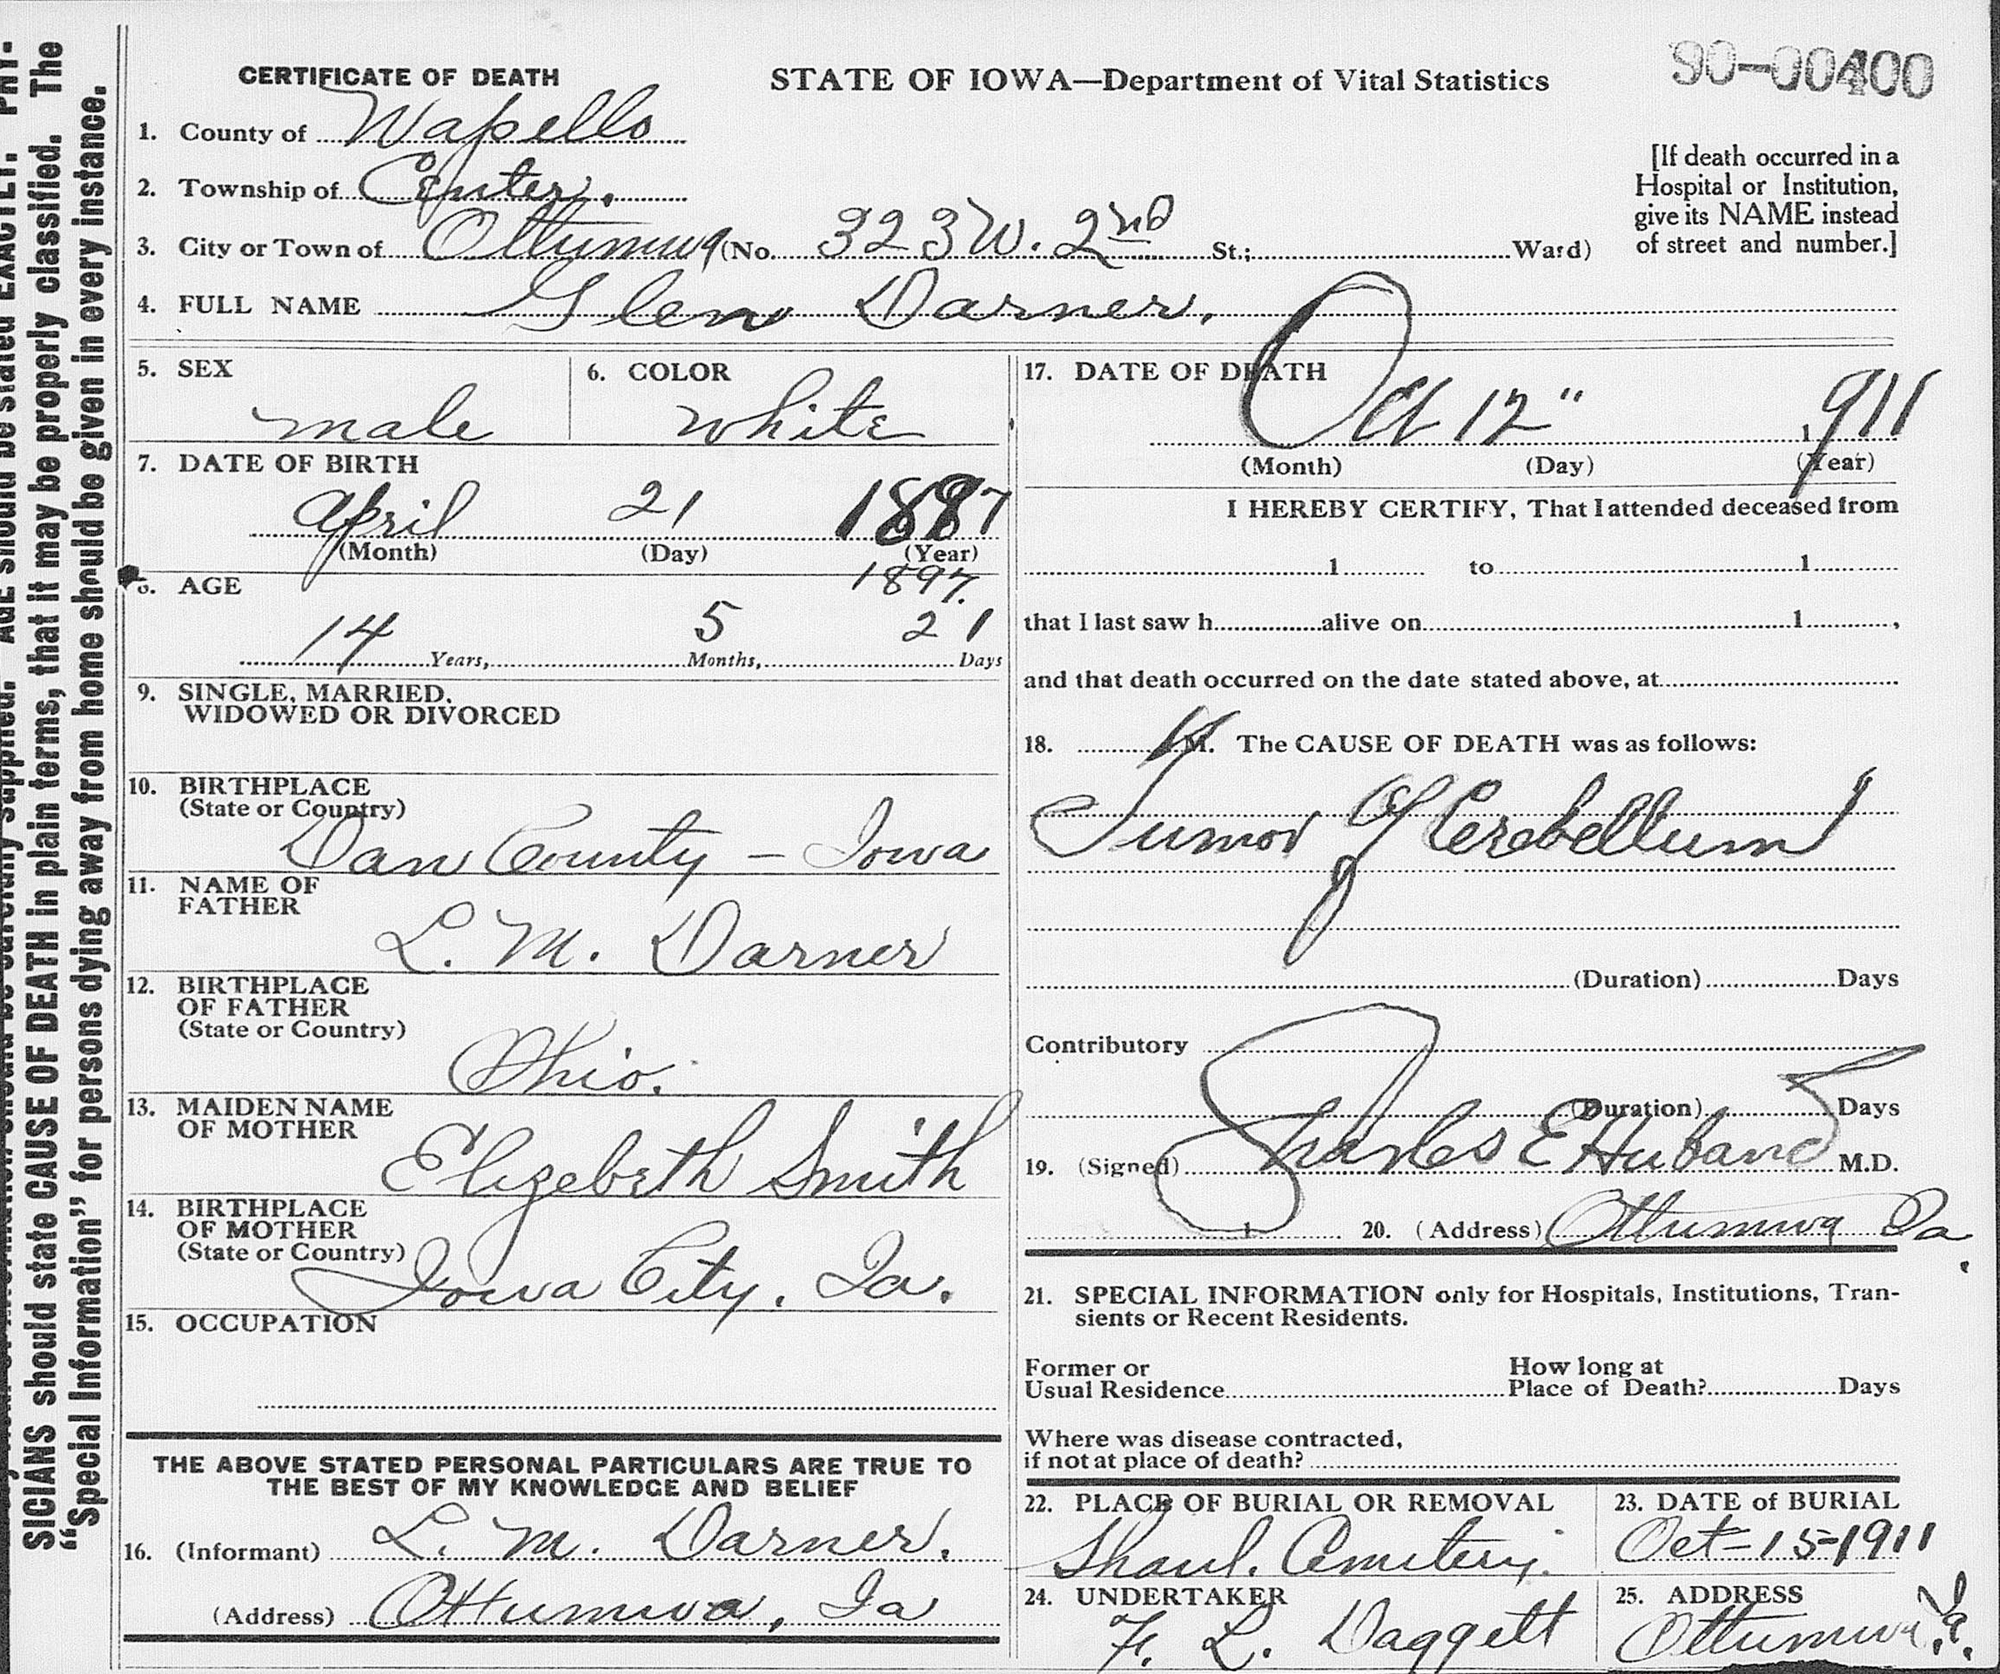 SICIANS should state CAUSE OF DEATH in plain terms, that it may be properly classified. The
"Special Information" for persons dying away from home should be given in every instance.
90-00400
CERTIFICATE OF DEATH
STATE OF IOWA—Department of Vital Statistics
1. County of Wapello
[If death occurred in a
Hospital or Institution,
give its NAME instead
of street and number.]
2. Township of Center.
3. City or Town of Ottumwa (No. 323 W. 2nd St.; Ward)
4. FULL NAME Glen Darner.
5. SEX
male
6. COLOR
white
7. DATE OF BIRTH
April 21 1887
(Month) (Day) (Year)
1897.
8. AGE
14 Years, 5 Months, 21 Days
9. SINGLE, MARRIED,
WIDOWED OR DIVORCED
10. BIRTHPLACE
(State or Country)
Dav County - Iowa
11. NAME OF
FATHER
L. M. Darner
12. BIRTHPLACE
OF FATHER
(State or Country)
Ohio.
13. MAIDEN NAME
OF MOTHER
Elizebeth Smith
14. BIRTHPLACE
OF MOTHER
(State or Country)
Iowa City, Ia.
15. OCCUPATION
THE ABOVE STATED PERSONAL PARTICULARS ARE TRUE TO
THE BEST OF MY KNOWLEDGE AND BELIEF
16. (Informant) L. M. Darner.
(Address) Ottumwa, Ia
17. DATE OF DEATH
Oct 12" 1911
(Month) (Day) (Year)
I HEREBY CERTIFY, That I attended deceased from
1 to 1
that I last saw h alive on 1 ,
and that death occurred on the date stated above, at
18. M. The CAUSE OF DEATH was as follows:
Tumor Of Cerebellum
(Duration) Days
Contributory
(Duration) Days
19. (Signed) Charles E Huband M.D.
1 20. (Address) Ottumwa Ia.
21. SPECIAL INFORMATION only for Hospitals, Institutions, Tran-
sients or Recent Residents.
Former or
Usual Residence
How long at
Place of Death? Days
Where was disease contracted,
if not at place of death?
22. PLACE OF BURIAL OR REMOVAL
Shaul. Cemetery.
23. DATE of BURIAL
Oct-15-1911
24. UNDERTAKER
F. L. Daggett
25. ADDRESS
Ottumwa, Ia.